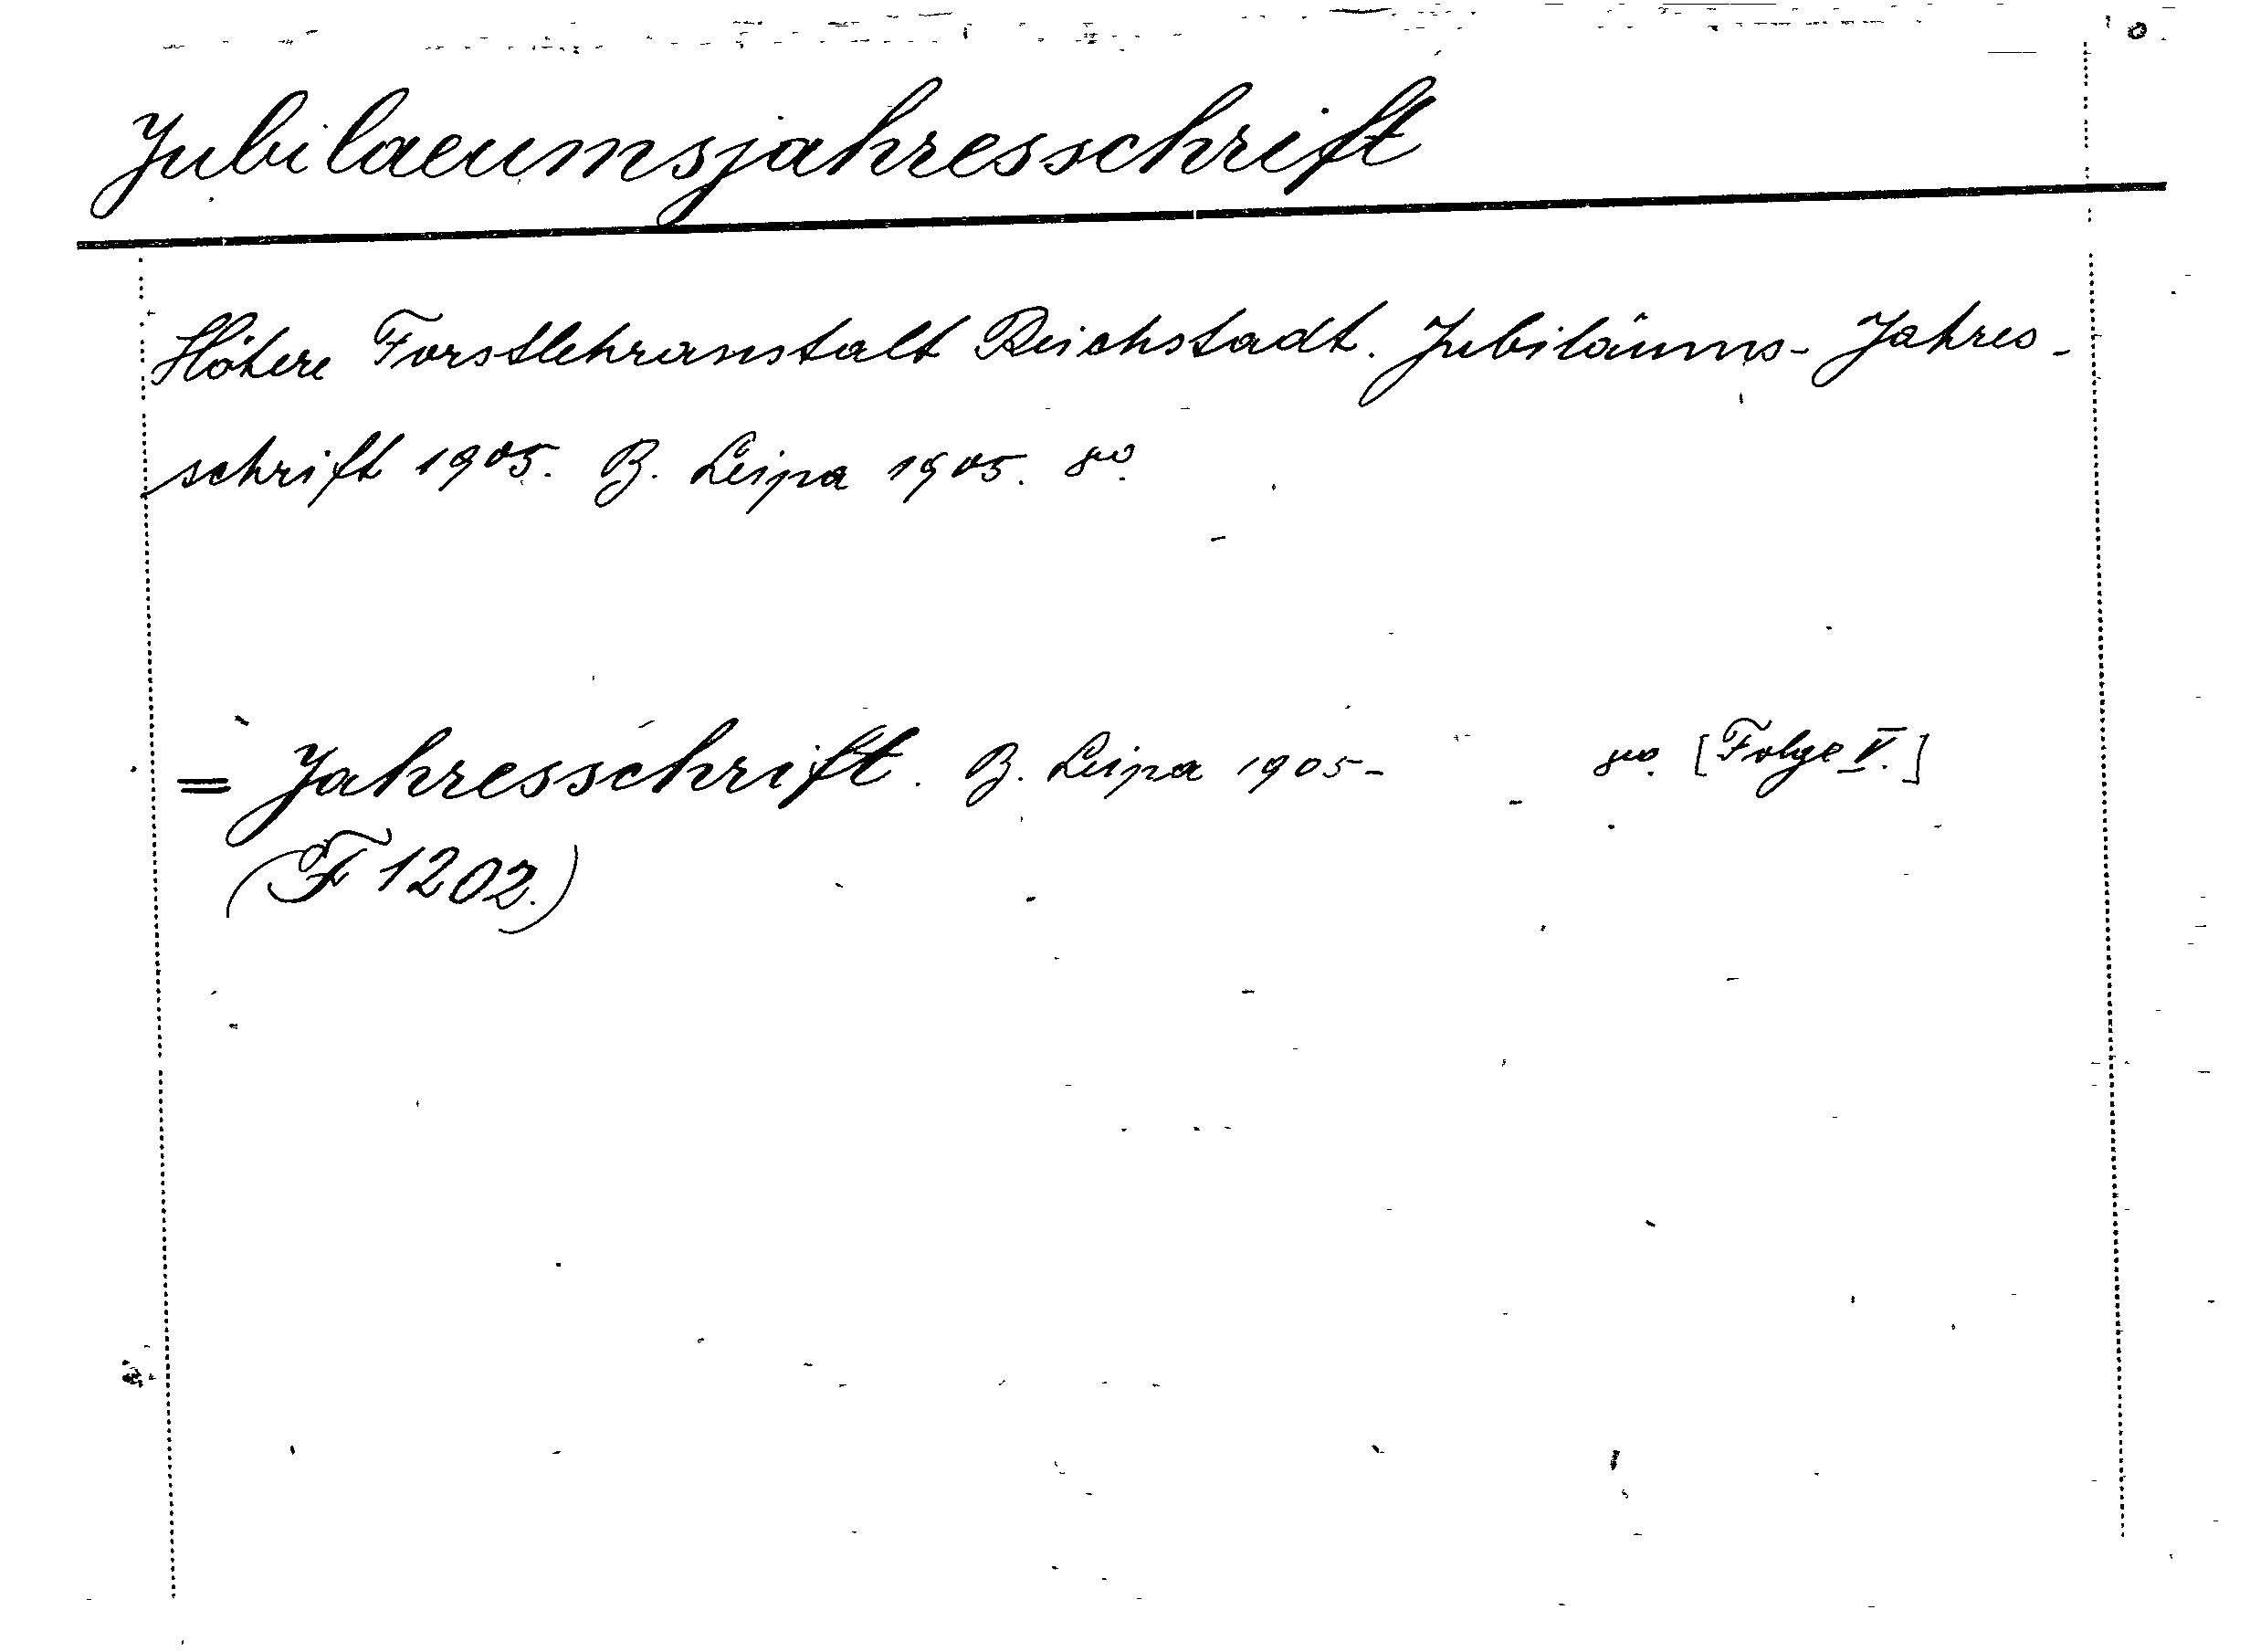 Jubilaeumsjahresschrift
Höhere Forstlehranstalt Reichstadt. Jubiläums-Jahres-
schrift 1905. B. Leipa 1905. 8vo.
= Jahresschrift. B. Leipa 1905- 8vo. [Folge V.]
(F 1202.)